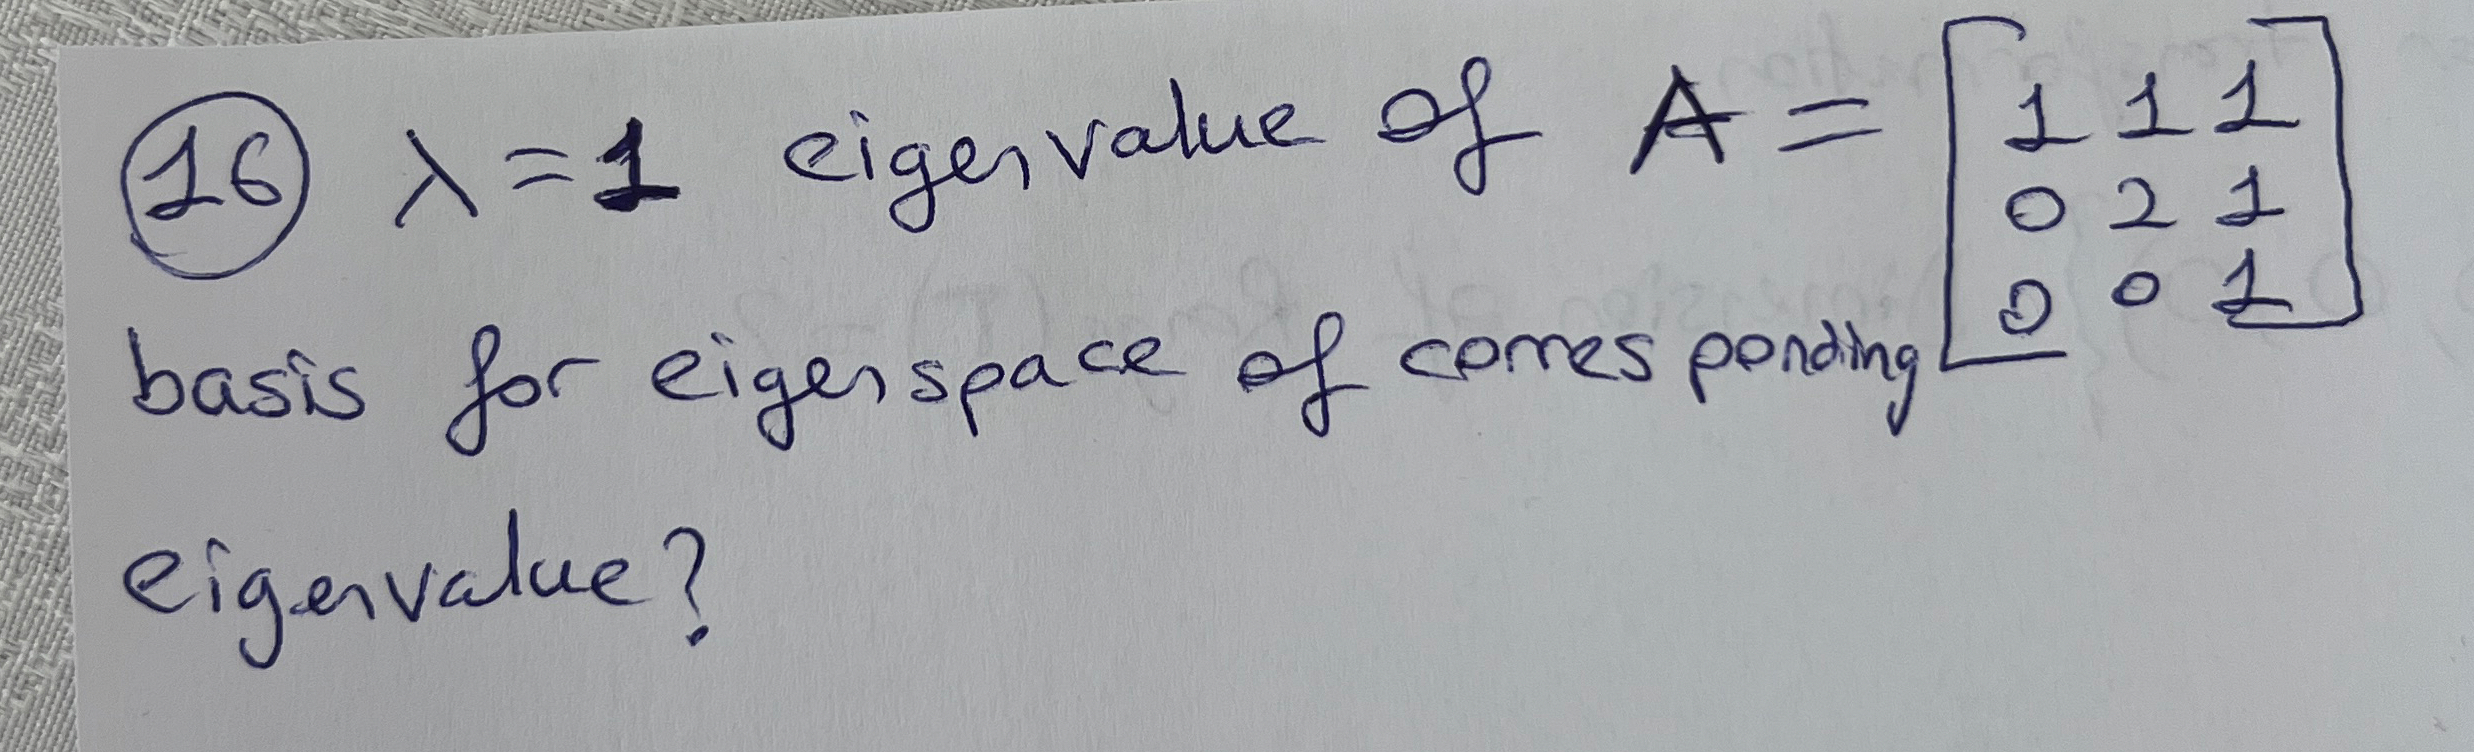 16 λ=1 eigenvalue of A = [1 1 1
0 2 1
0 0 1]
basis for eigenspace of corresponding
eigenvalue?